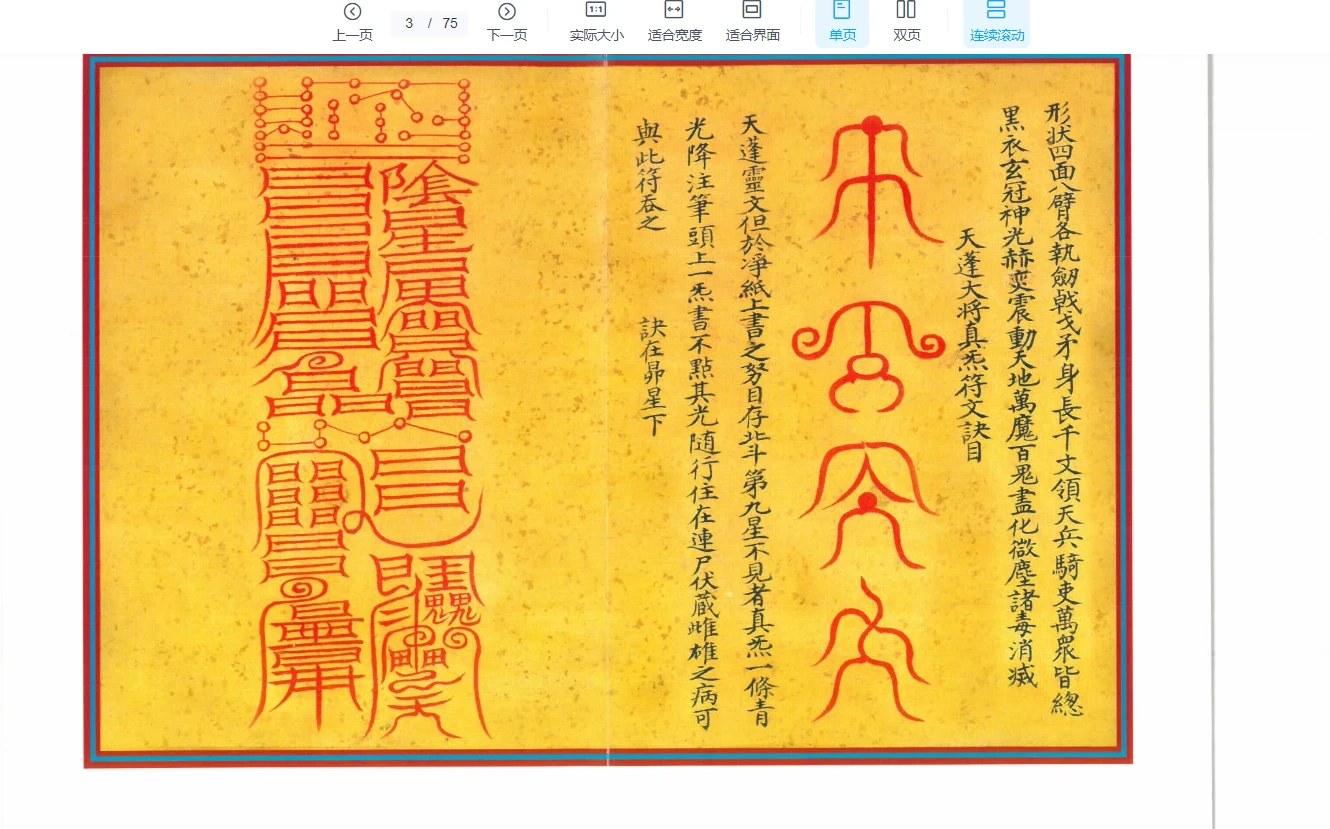 上一页
3 / 75
下一页
1:1
实际大小
适合宽度
适合界面
单页
双页
连续滚动
形状四面八臂各執劒戟戈矛身長千丈領天兵騎吏萬眾皆總
黑衣玄冠神光赫奕震動天地萬魔百鬼盡化微塵諸毒消滅
天蓬大将真炁符文訣目
天蓬靈文但於凈紙上書之努目存北斗第九星不見者真炁一條青
光降注筆頭上一炁書不點其光随行住在連尸伏蔵雌雄之病可
與此符吞之
訣在昴星下
陰